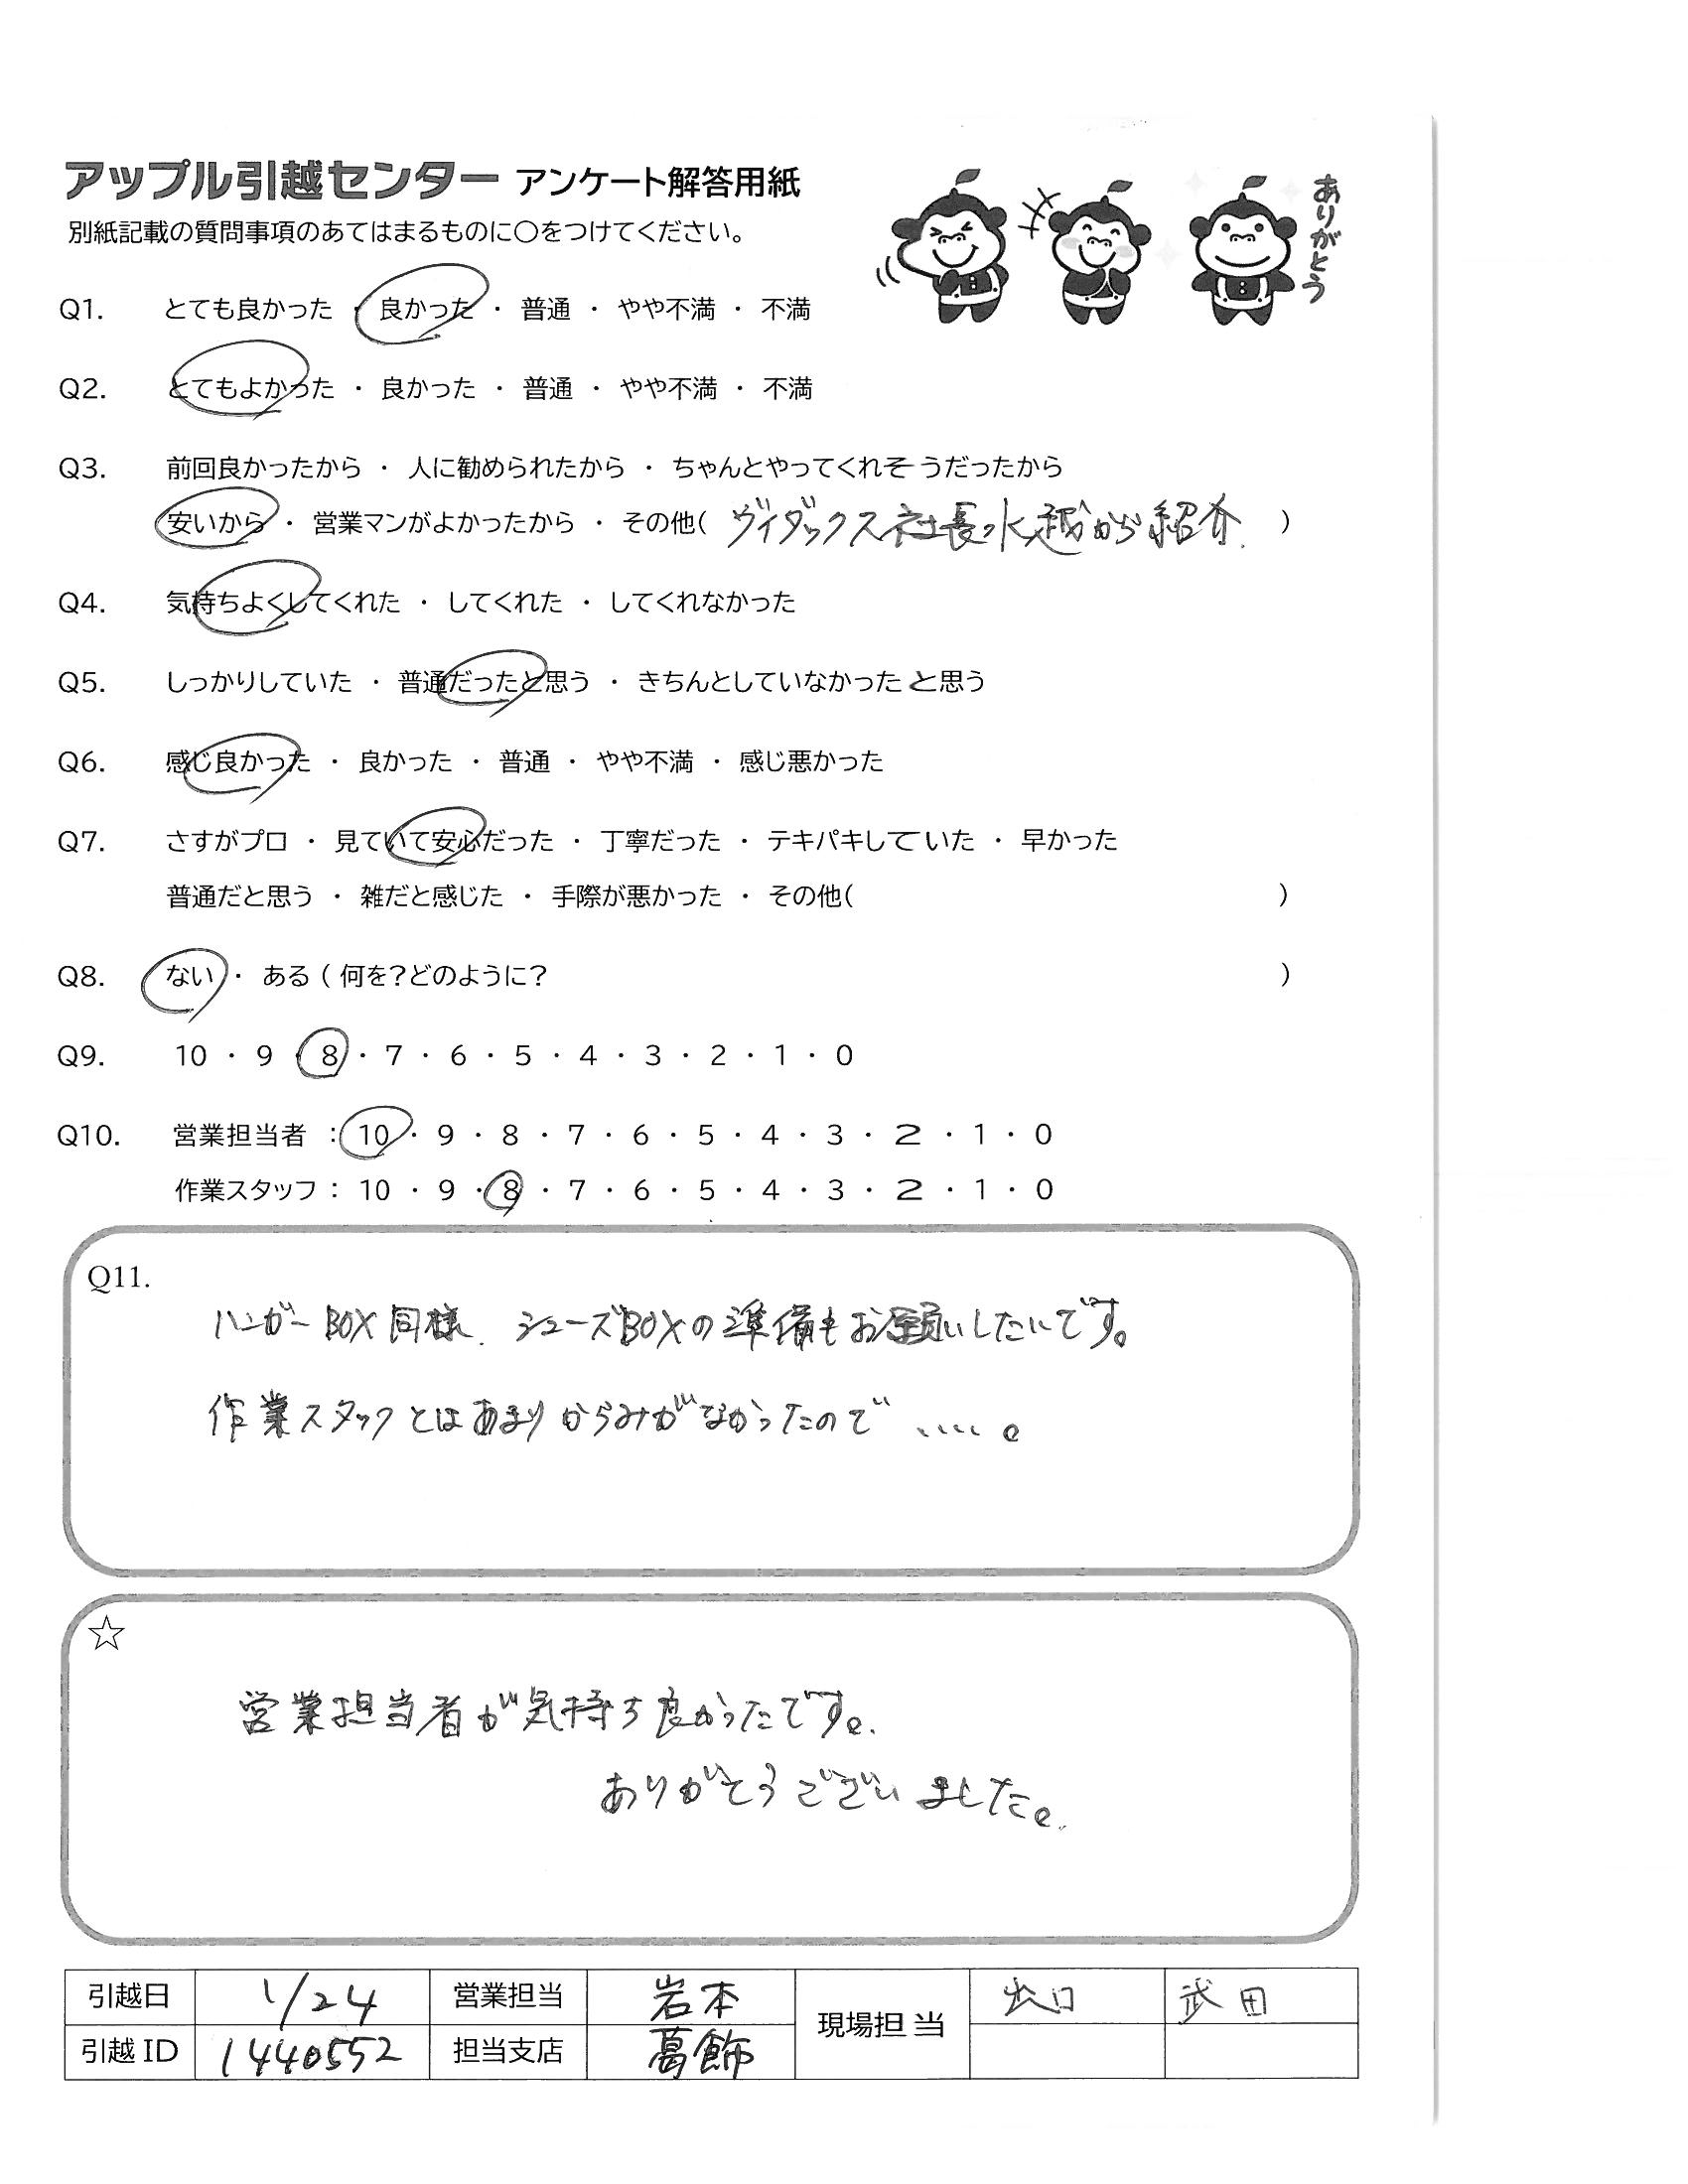 アップル引越センター アンケート解答用紙
別紙記載の質問事項のあてはまるものに○をつけてください。
ありがとう
Q1. とても良かった ・ 良かった ・ 普通 ・ やや不満 ・ 不満
Q2. とてもよかった ・ 良かった ・ 普通 ・ やや不満 ・ 不満
Q3. 前回良かったから ・ 人に勧められたから ・ ちゃんとやってくれそうだったから
安いから ・ 営業マンがよかったから ・ その他( ヴィダックス社長水越から紹介. )
Q4. 気持ちよくしてくれた ・ してくれた ・ してくれなかった
Q5. しっかりしていた ・ 普通だったと思う ・ きちんとしていなかったと思う
Q6. 感じ良かった ・ 良かった ・ 普通 ・ やや不満 ・ 感じ悪かった
Q7. さすがプロ ・ 見ていて安心だった ・ 丁寧だった ・ テキパキしていた ・ 早かった
普通だと思う ・ 雑だと感じた ・ 手際が悪かった ・ その他( )
Q8. ない ・ ある ( 何を?どのように? )
Q9. 10 ・ 9 ・ 8 ・ 7 ・ 6 ・ 5 ・ 4 ・ 3 ・ 2 ・ 1 ・ 0
Q10. 営業担当者 : 10 ・ 9 ・ 8 ・ 7 ・ 6 ・ 5 ・ 4 ・ 3 ・ 2 ・ 1 ・ 0
作業スタッフ : 10 ・ 9 ・ 8 ・ 7 ・ 6 ・ 5 ・ 4 ・ 3 ・ 2 ・ 1 ・ 0
Q11.
ハンガーBOX同様、シューズBOXの準備もお願いしたいです。
作業スタッフとはあまりからみがなかったので、、、、。
☆
営業担当者が気持ち良かったです。
ありがとうございました。
引越日 1/24 営業担当 岩本 現場担当 出口 武田
引越ID 1440552 担当支店 葛飾